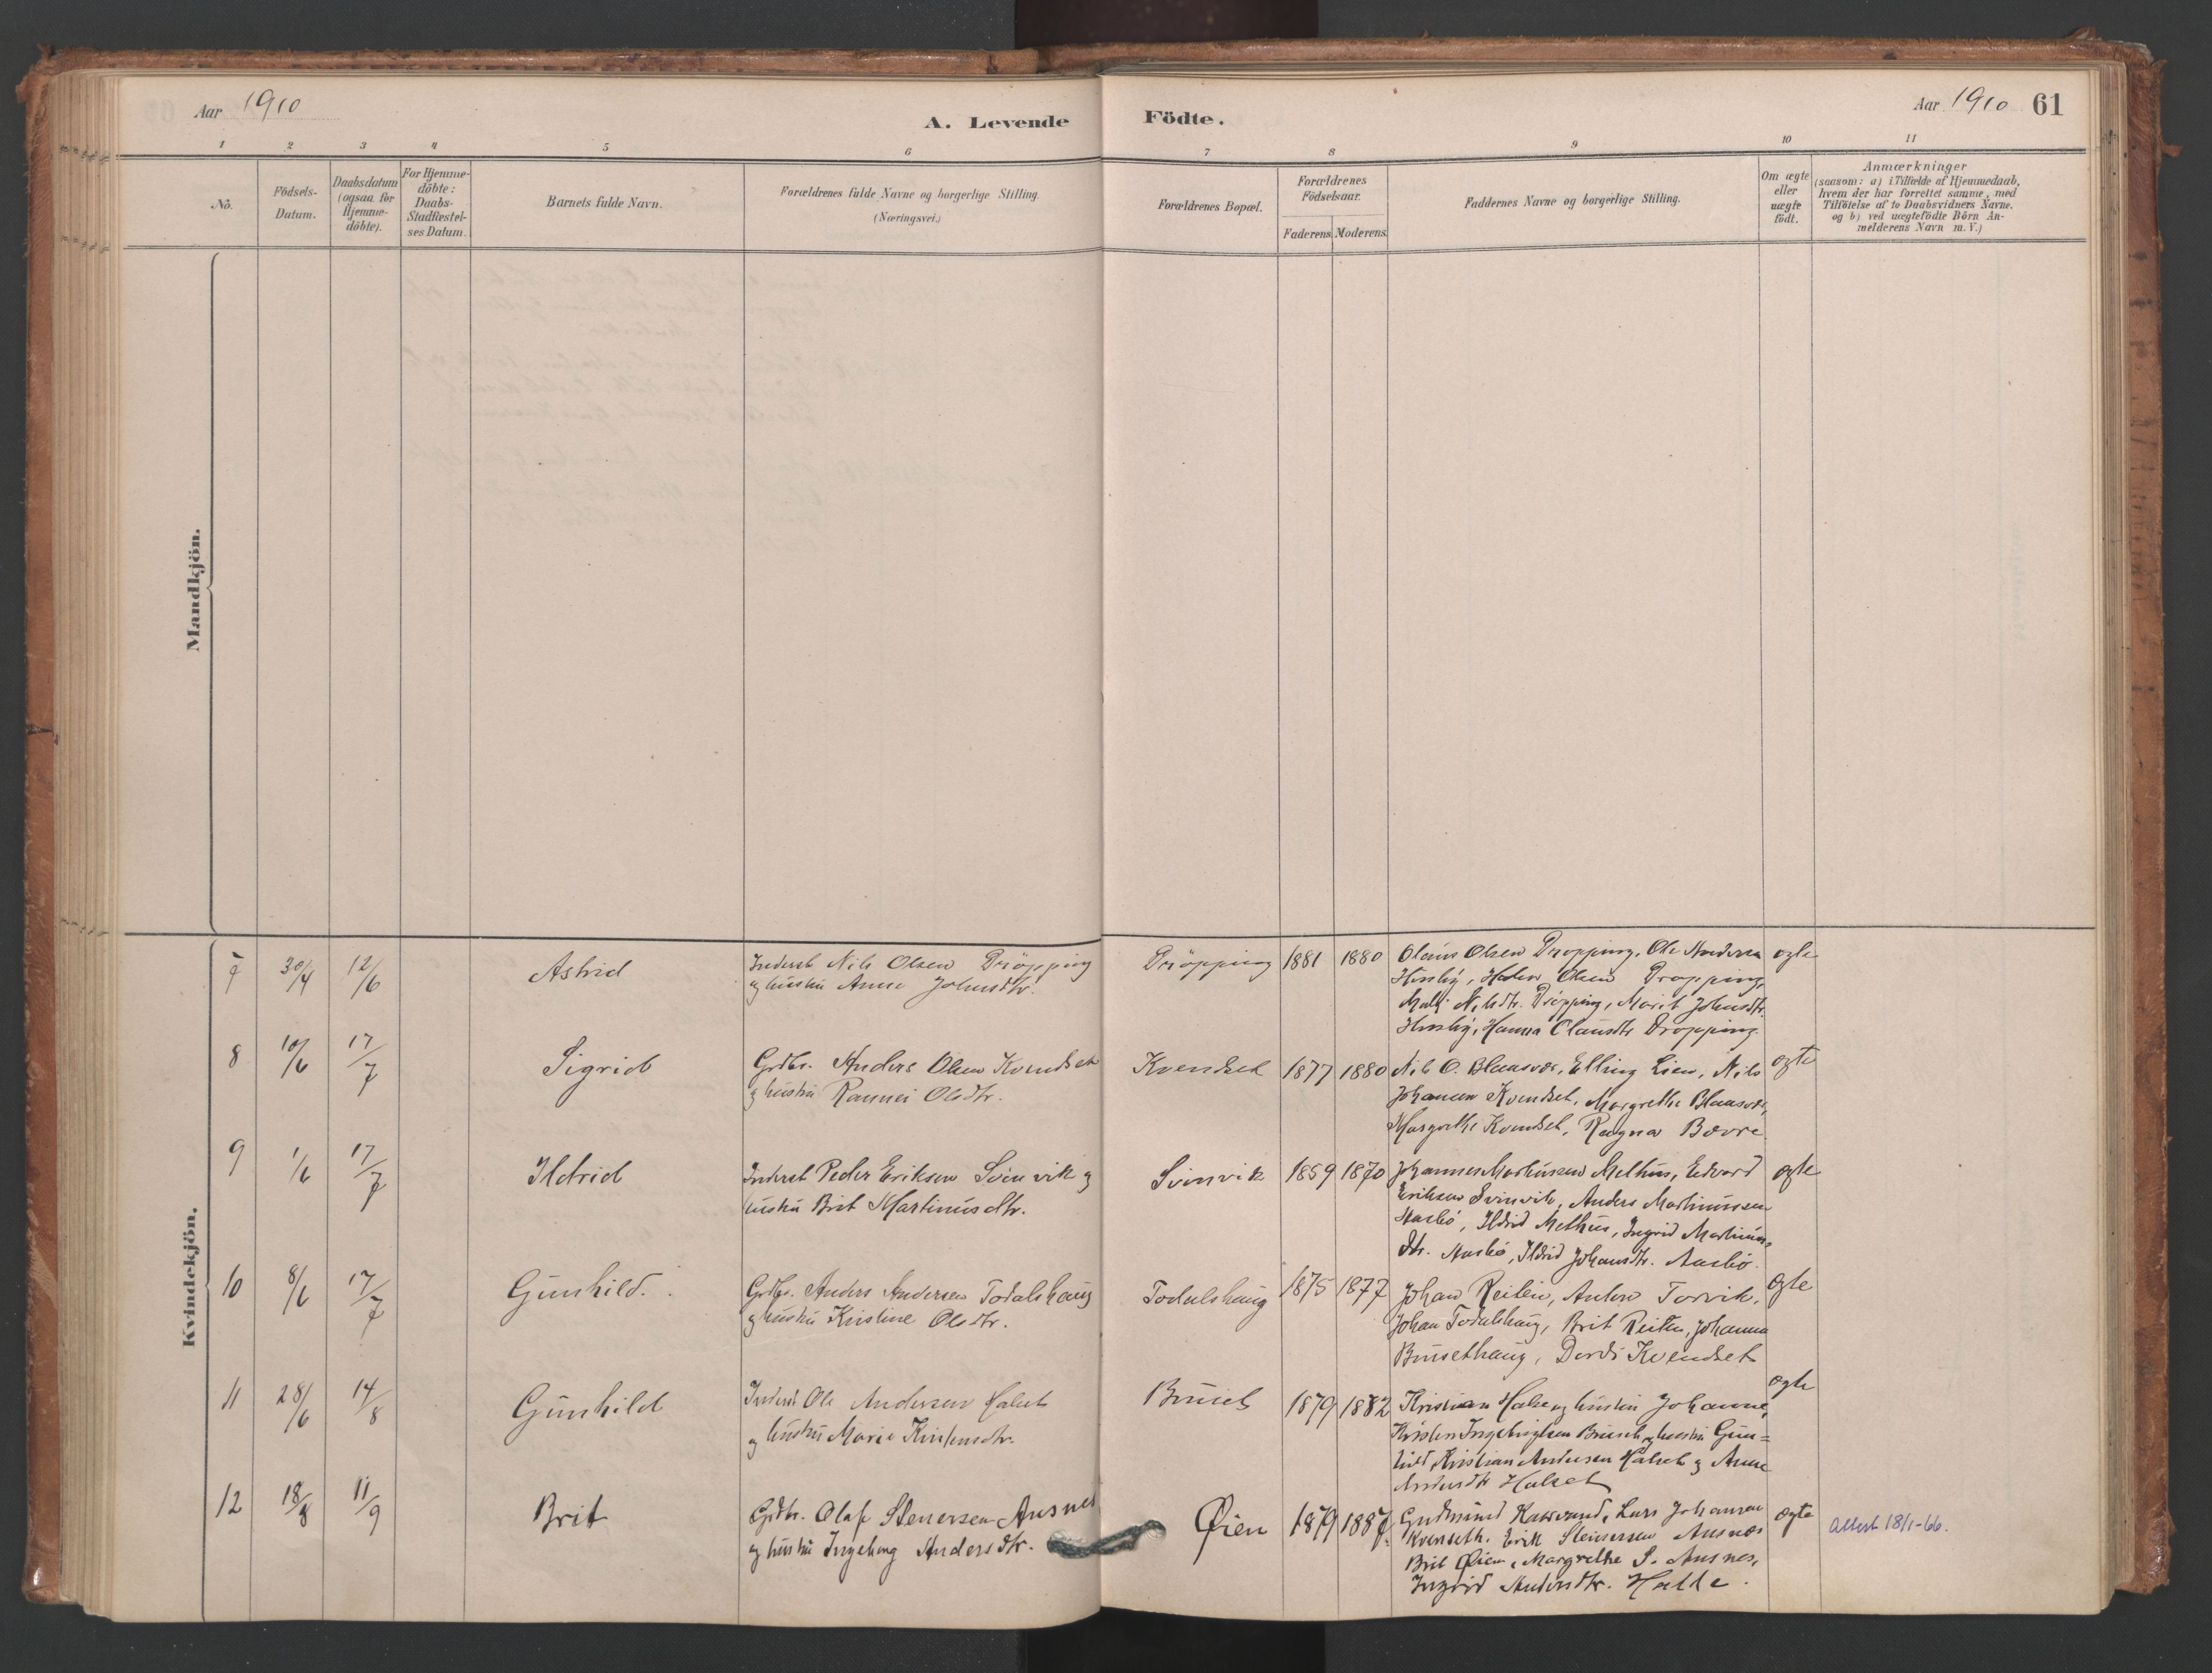 Aar 1910
A. Levende Födte.
Aar 1910 61
1 2 3 4 5 6 7 8 9 10 11
No.
Födsels-Datum.
Daabsdatum (ogsaa for Hjemme-döbte).
For Hjemme-döbte: Daabs-Stadfæstel-ses Datum.
Barnets fulde Navn.
Forældrenes fulde Navne og borgerlige Stilling. (Næringsvei.)
Forældrenes Bopæl.
Forældrenes Födselsaar.
Faderens. Moderens.
Faddernes Navne og borgerlige Stilling.
Om ægte eller uægte födt.
Anmærkninger
(saasom: a) i Tilfælde af Hjemmedaab,
hvem der har forrettet samme, med
Tilföielse af to Daabsvidners Navne,
og b) ved uægtefödte Börn An-
melderens Navn m. V.)
Mandkjön.
Kvindekjön.
7 30/4 12/6 Astrid
Inderst Nils Olsen Dröpping
og hustru Anne Johnsdtr.
Dröpping 1881 1880
Olaus Olsen Dropping, Ole Andersen
Husby, Olsen Dropping,
Nilsdtr. Dröpping, Marit Johnsdtr.
Husby, Hanna Olausdtr Dropping.
ægte
8 10/6 17/7 Sigrid
Grdbr. Anders Olsen Kvendset
og hustru Rannei Olsdtr.
Kvendset 1877 1880
Nils O. Blaasvær, Elling Lien, Nils
Johansen Kvendset, Margrethe Blaasvær,
Margrethe Kvendset, Ragna Bævre.
ægte
9 1/6 17/7 Ildrid
Inderst Peder Eriksen Svinvik og
hustru Brit Martinusdtr.
Svinvik 1859 1870
Johannes Martinusen Melhus, Edvard
Eriksen Svinvik, Anders Martinussen
Aasbö, Ildrid Melhus, Ingrid Martinus
dtr. Aasbö, Ildrid Johansdtr. Aasbö.
ægte
10 8/6 17/7 Gunhild.
Grdbr. Anders Andersen Todalshaug
og hustru Kristine Olsdtr.
Todalshaug 1875 1877
Johan Reiten, Anders Torvik,
Johan Todalshaug, Brit Reiten, Johanna
Brusethaug, Dordi Kvendset
ægte
11 28/6 14/8 Gunhild
Inderst Ole Andersen Halset
og hustru Marie Kristensdtr.
Bruset 1879 1882
Kristian Halse og hustru Johanne,
Kristen Ingebrigtsen Bruset og hustru Gun=
hild, Kristian Andersen Halset og Anne
Andersdtr Halset
ægte
12 18/8 11/9 Brit
Grdbr. Olaf Stenersen Ausnes
og hustru Ingeborg Andersdtr.
Øien 1879 1887
Gudmund Kaarvand, Lars Johansen
Kvenseth, Erik Steinersen Ausnes
Brit Øien, Margrethe S. Ausnes,
Ingrid Andersdtr. Halse.
ægte
Attest 18/1-66.